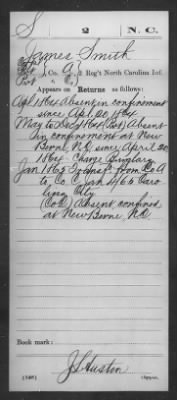 S 2 N.C.
James Smith
Co. A, 2 Reg't North Carolina Inf.
Appears on Returns as follows:
Apl 1864 Absent in confinement
since Apl 20 1864
May to Dec 1864 Absent
in confinement at New
Berne, N.C. since April 20
1864. Charge Burglary
Jan 1865 from Co A
to Co Jan 4 65
City
Absent confined
at New Berne, N.C.
Book mark:
J S Austin
Copyist.